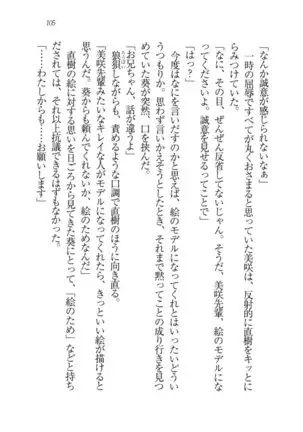 105
「なんか誠意が感じられないなぁ」
一時の屈辱ですべてが丸くおさまると思っていた美咲は、反射的に直樹をキッとに
らみつけていた。
「なに、その目、ぜんぜん反省してないじゃん。そうだ、美咲先輩、絵のモデルにな
ってくださいよ。誠意を見せるってことで」
「はっ？」
今度はなにを言いだすのかと思えば、絵のモデルになってくれとはいったいどうい
うつもりか。思わず言いかえそうとしたとき、それまで黙ってことの成り行きを見つ
めていた葵が突然、口を挟んだ。
「お兄ちゃん、話が違うよ」
狼狽しながらも、責めるような口調で直樹のほうに向き直る。
「美咲先輩みたいなキレイな人がモデルになってくれたら、きっといい絵が描けると
思うんだ。葵からも頼んでくれないか、絵のためなんだ」
直樹の絵に対する思いを日ごろから見てきた葵にとって、「絵のため」などと持ち
だされては、それ以上抗議できるはずもなかった。
「……わたしからも……お願いします」